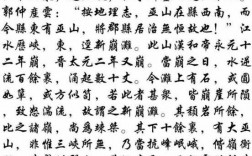 郭仲産雲：“按地理志，巫山在縣西南，而
今縣東有巫山，將郡縣居治無恒故也！”江
水歷峽，東，逕新崩灘。此山漢和帝永元十
二年崩，晉太元二年又崩。當崩之日，水逆
流百餘裏，涌起數十丈。今灘上有石，或圓
如簞，或方似笥，若此者甚衆，皆崩崖所隕
，致怨湍流，故謂之新崩灘。其頹岩所餘，
比之諸嶺，尚爲竦桀。其下十餘裏，有大巫
山，非惟三峽所無，乃當抗峰岷峨，偕嶺衡